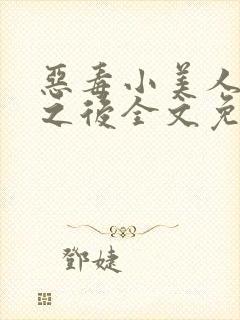 惡毒小美人
之後全文免
鄧婕